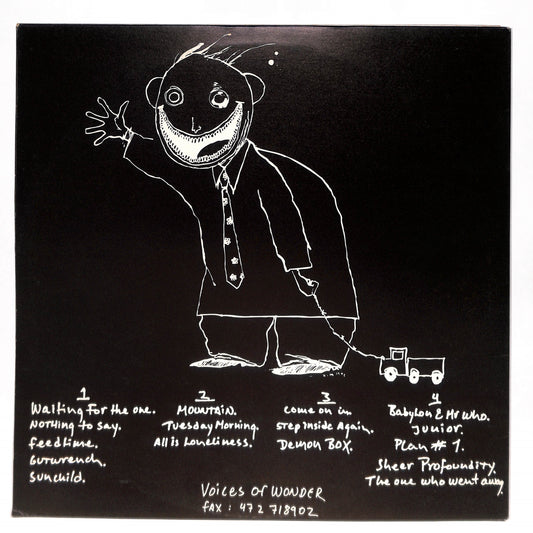 1
Waiting For the one.
NOTHING to say.
feedtime.
Gutwrench.
Sunchild.
2
MOUNTAIN.
Tuesday Morning.
All is Loneliness.
3
Come on in
step inside Again.
DEMON BOX.
4
Babylon & Mr Who.
Junior.
Plan # 1.
Sheer Profoundity.
The one who went away.
Voices of WONDER
FAX : 47 2 718902